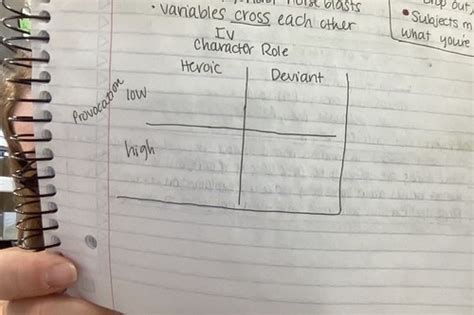 noise blasts
• variables cross each other
IV
Character Role
Heroic Deviant
Provocation
low
high
drop out
• Subjects m
what you're